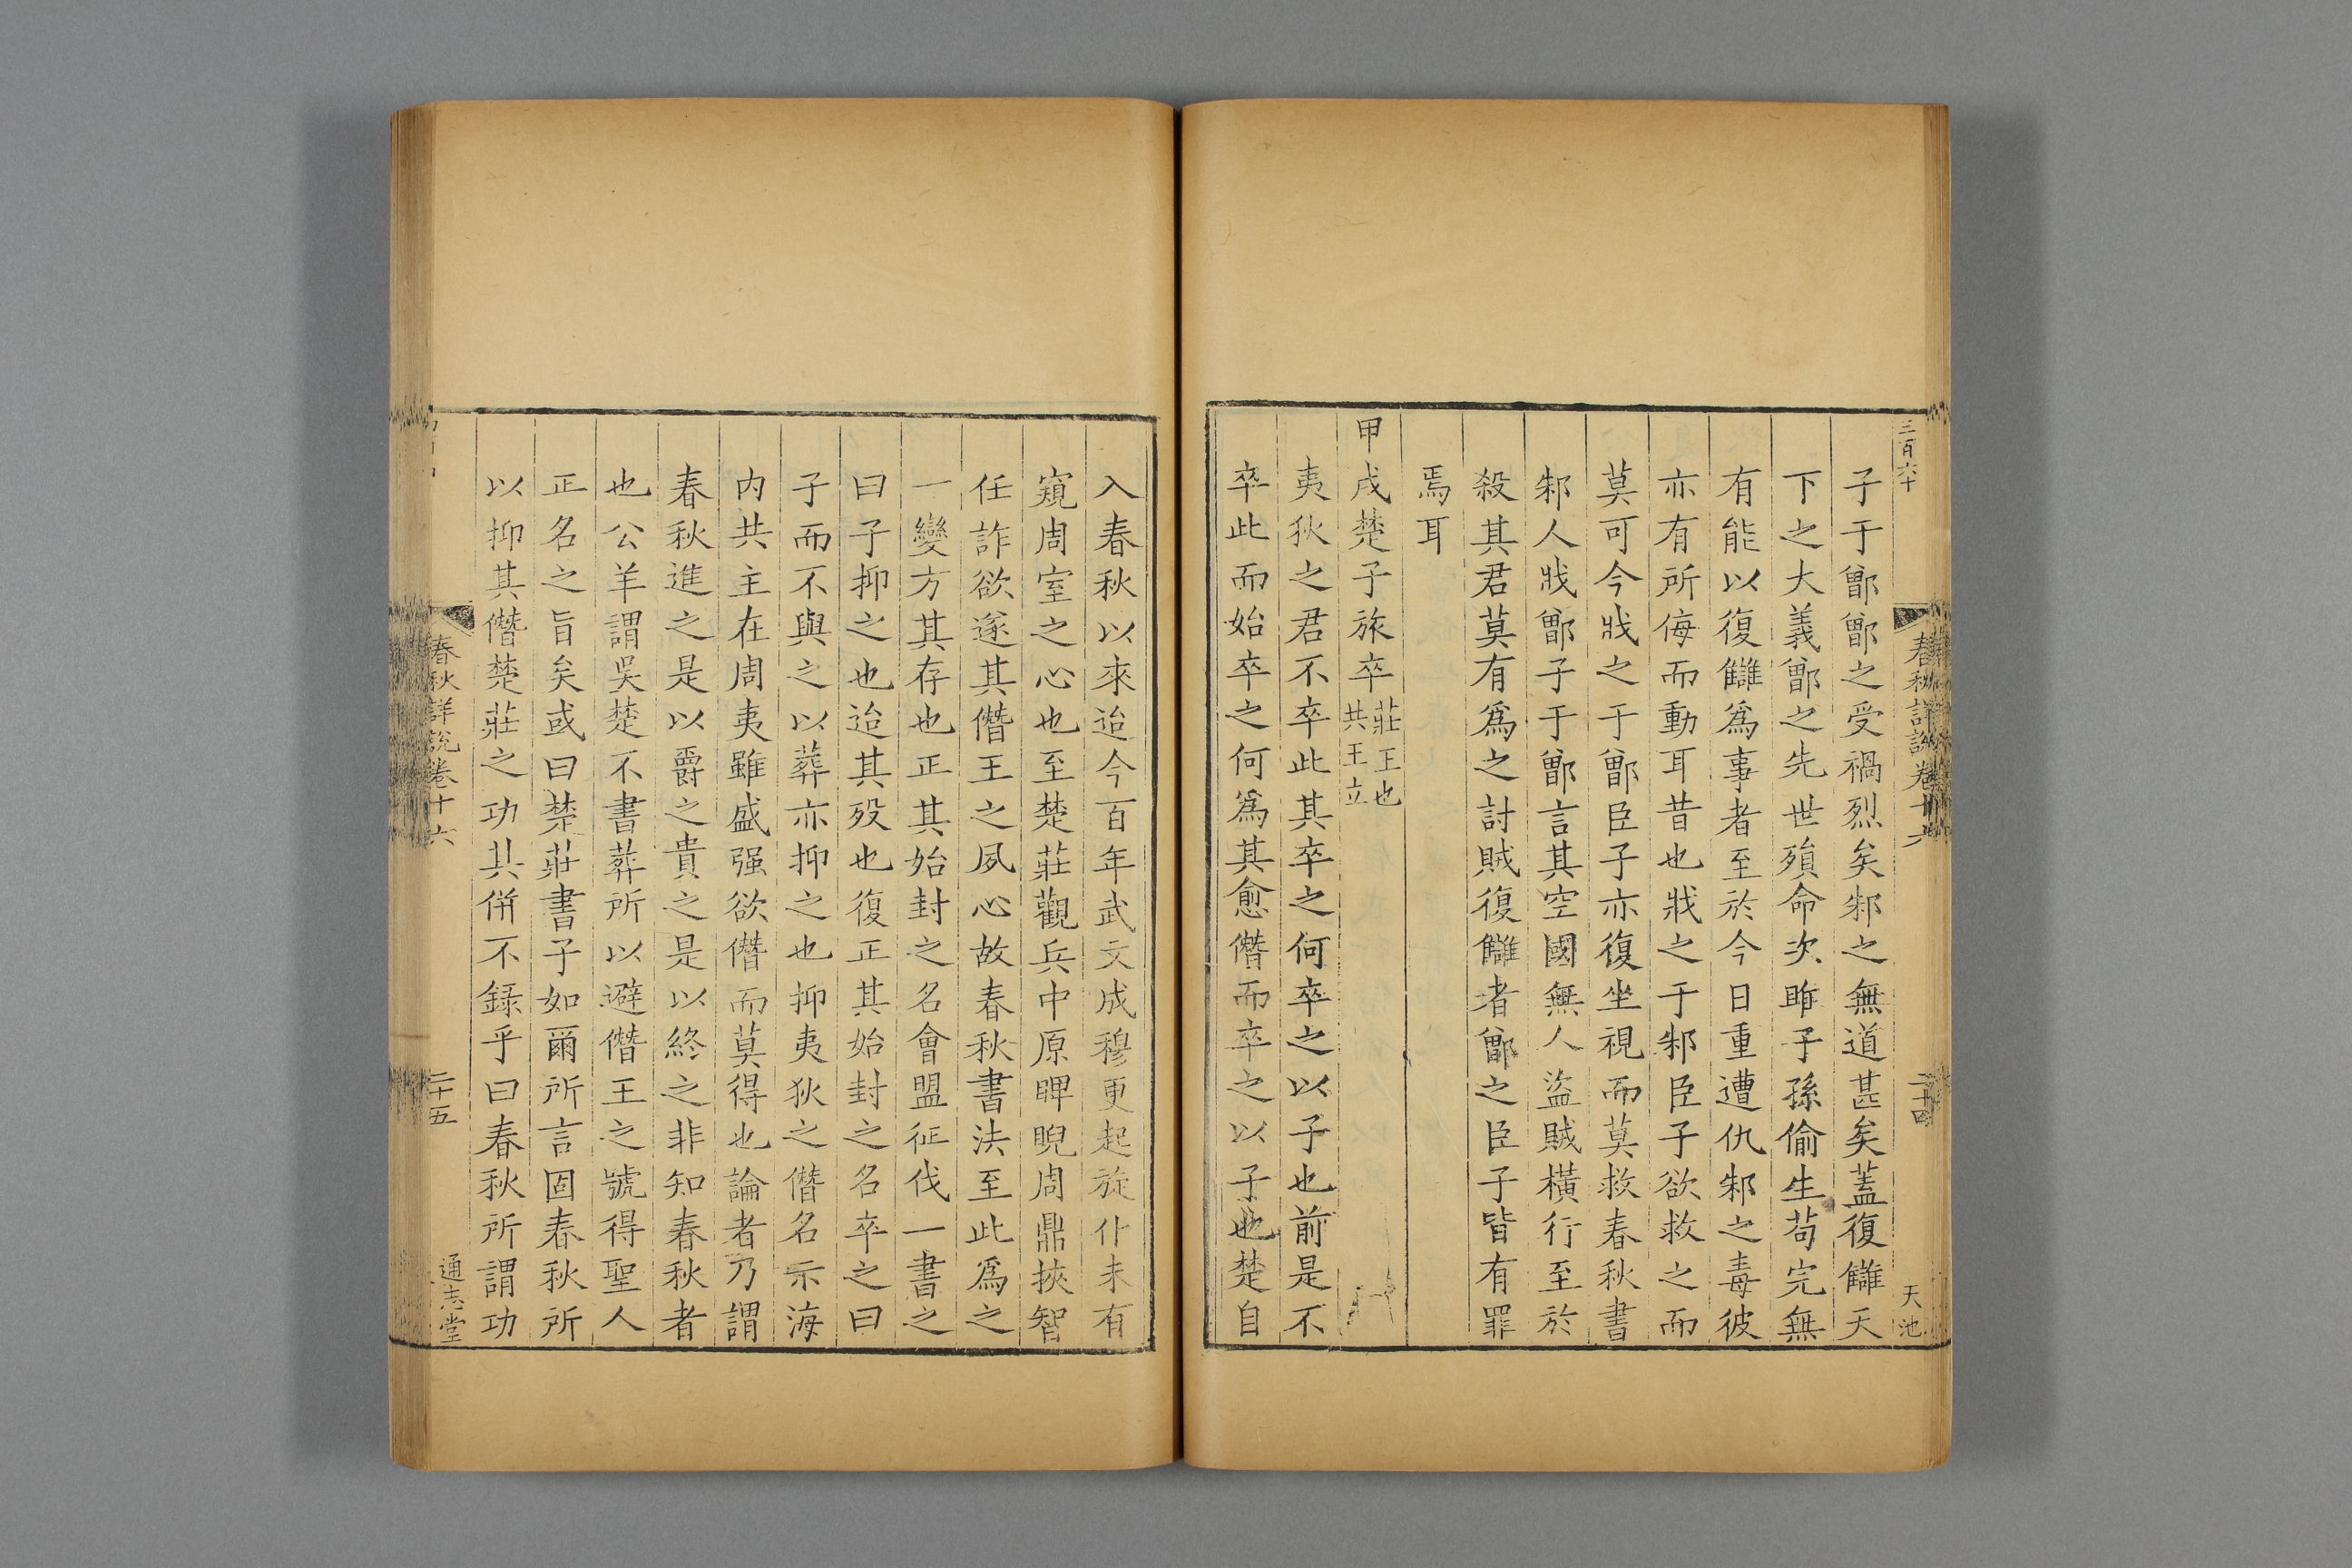 三百六十
春秋詳說卷十六
二十四
天池
子于鄫鄫之受禍烈矣邾之無道甚矣蓋復讎天
下之大義鄫之先世殞命次睢子孫偷生苟完無
有能以復讎爲事者至於今日重遭仇邾之毒彼
亦有所侮而動耳昔也戕之于邾臣子欲救之而
莫可今戕之于鄫臣子亦復坐視而莫救春秋書
邾人戕鄫子于鄫言其空國無人盜賊橫行至於
殺其君莫有爲之討賊復讎者鄫之臣子皆有罪
焉耳
甲戌楚子旅卒莊王也共王立
夷狄之君不卒此其卒之何卒之以子也前是不
卒此而始卒之何爲其愈僭而卒之以子也楚自
入春秋以來迨今百年武文成穆更起旋仆未有
窺周室之心也至楚莊觀兵中原睥睨周鼎挾智
任詐欲逐其僭王之夙心故春秋書法至此爲之
一變方其存也正其始封之名會盟征伐一書之
曰子抑之也迨其歿也復正其始封之名卒之曰
子而不與之以葬亦抑之也抑夷狄之僭名示海
內共主在周夷雖盛强欲僭而莫得也論者乃謂
春秋進之是以爵之貴之是以終之非知春秋者
也公羊謂吳楚不書葬所以避僭王之號得聖人
正名之旨矣或曰楚莊書子如爾所言固春秋所
以抑其僭楚莊之功其併不錄乎曰春秋所謂功
春秋詳說卷十六
二十五
通志堂